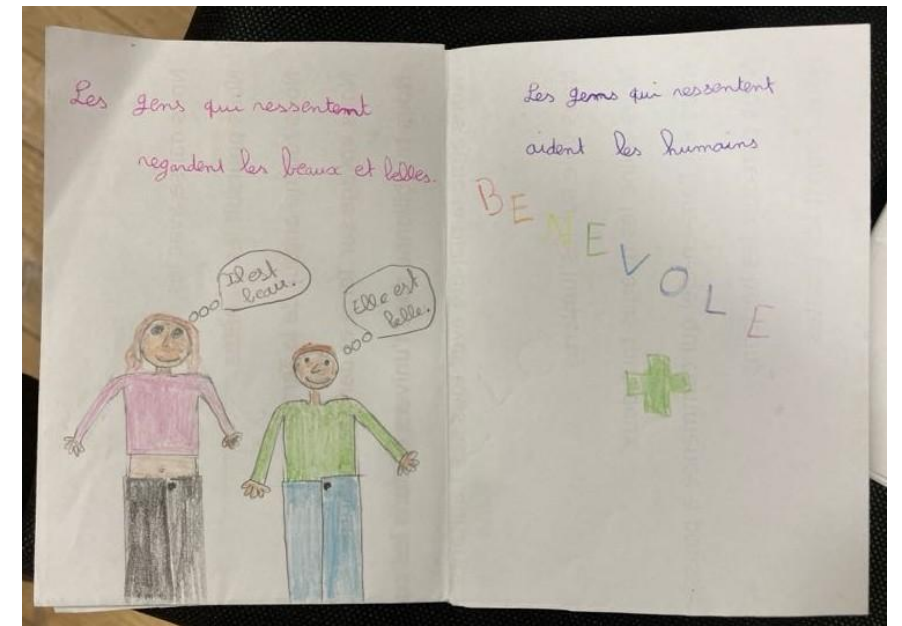 Les gens qui ressentent
regardent les beaux et belles.
Il est
beau.
Elle est
belle.
Les gens qui ressentent
aident les humains
BENEVOLE